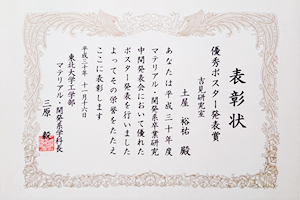 表彰状
優秀ポスター発表賞
吉見研究室
土屋 裕祐 殿
あなたは平成三十年度
マテリアル・開発系卒業研究
中間発表会において優れた
ポスター発表を行いました
よってその栄誉をたたえ
ここに表彰します
平成三十年 十一月十六日
東北大学工学部
マテリアル・開発系学科長
三原 毅